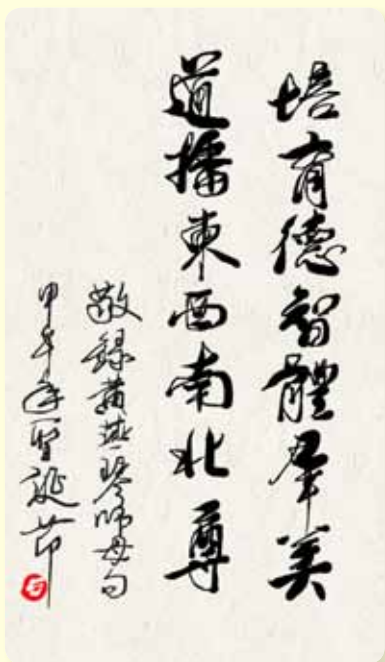 培育德智體羣美
道播東西南北尊
敬錄黃燕琴師母句
甲午年聖誕節